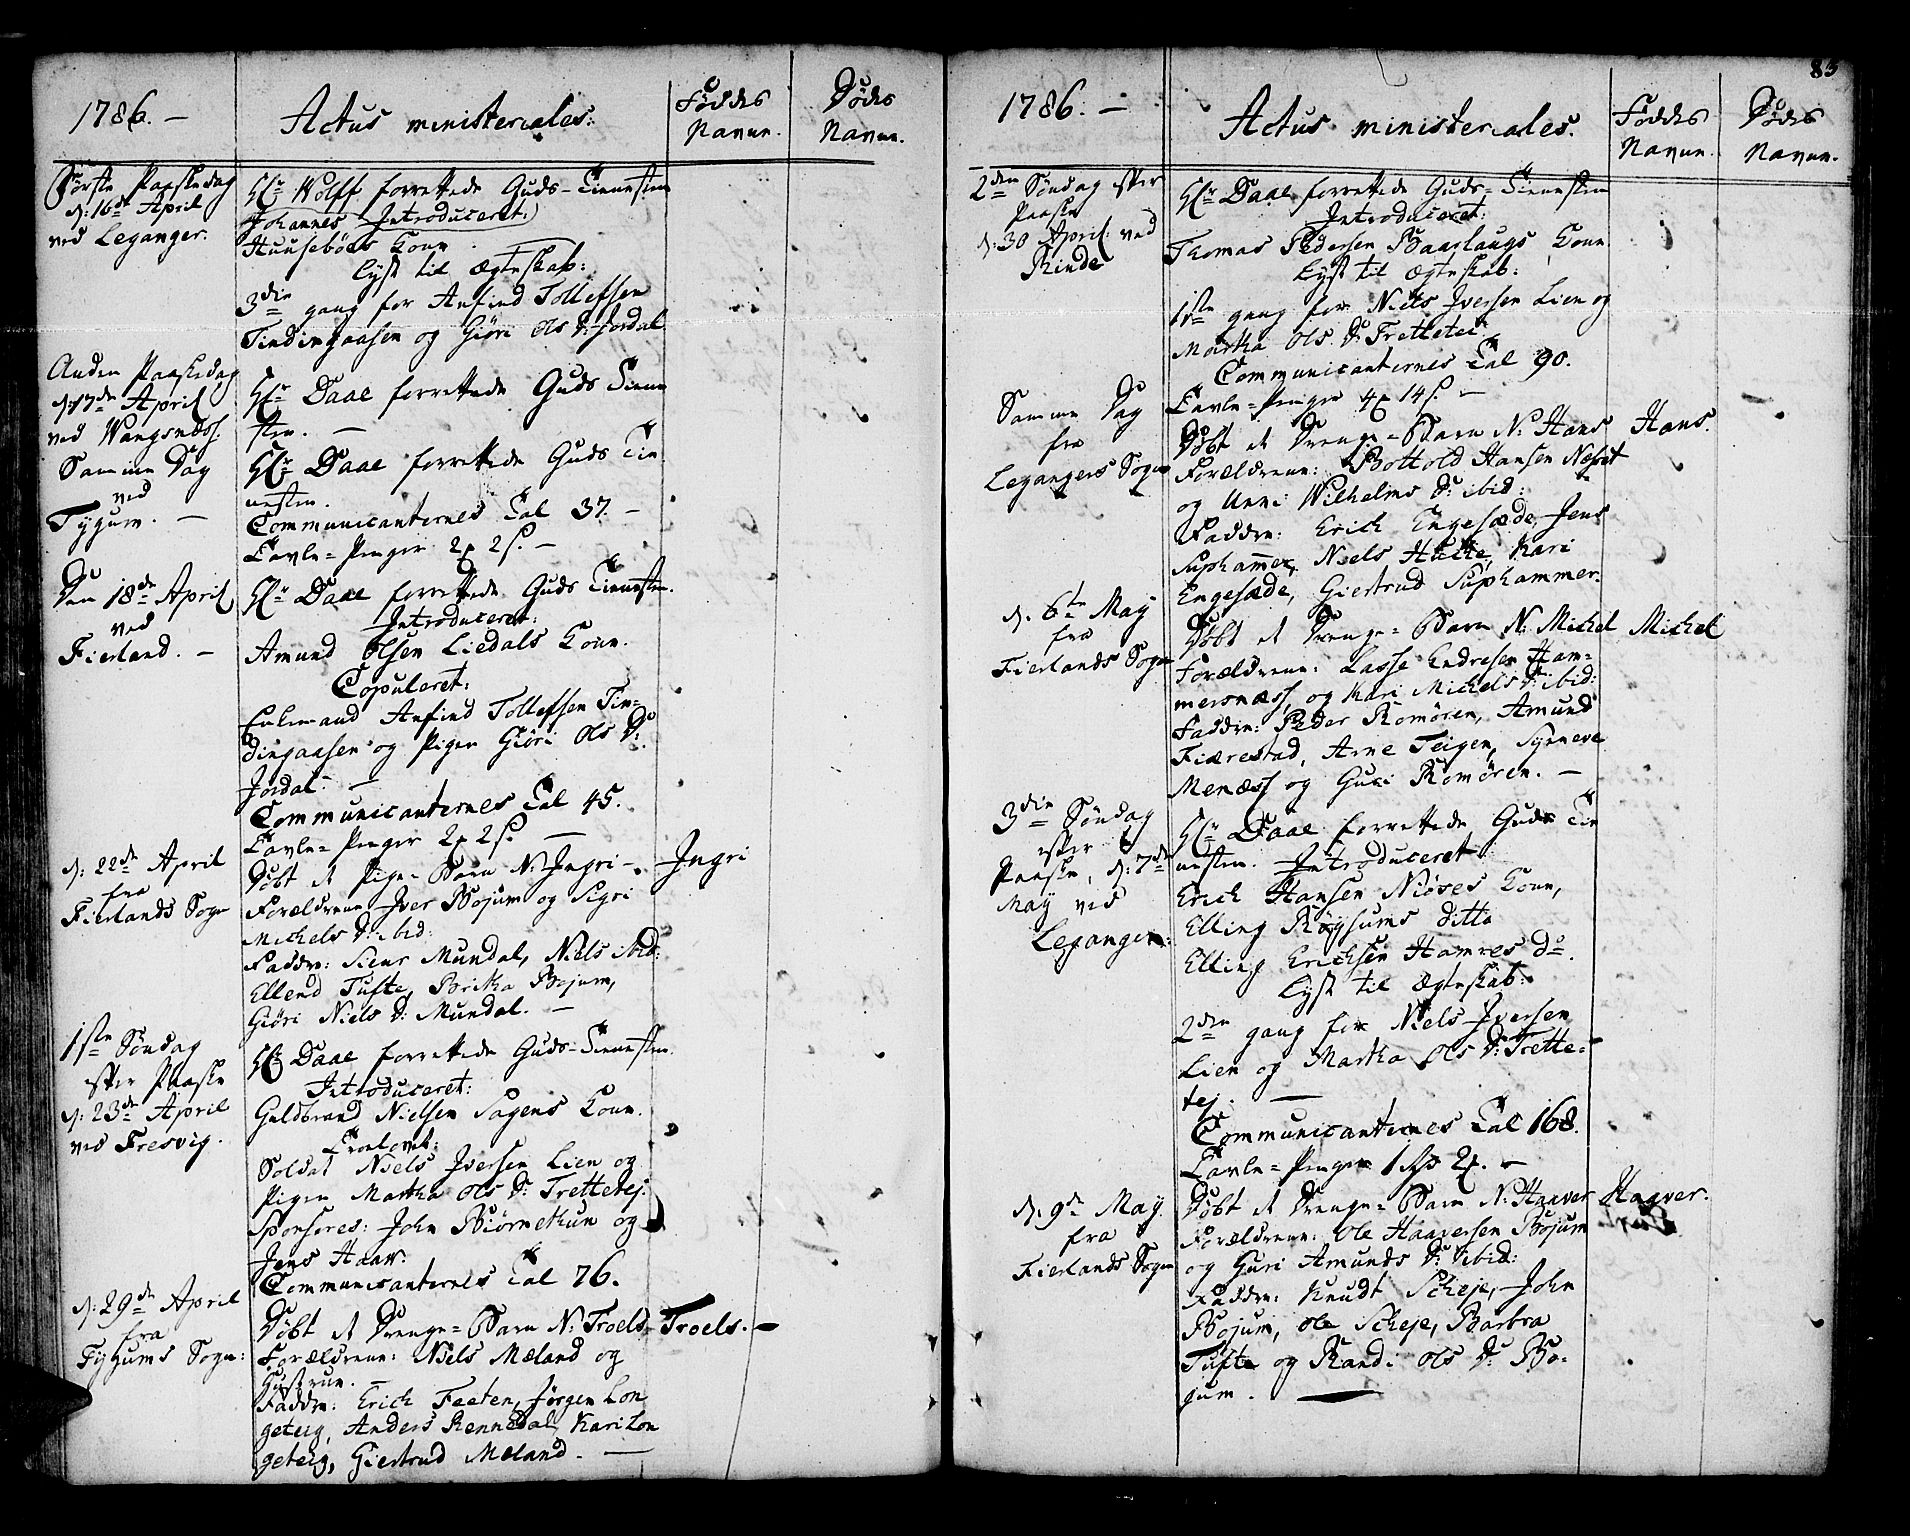 1786. —
Actus ministeriales:
Føddes
Navne.
Dødes
Navne.
Første Paaskedag
d: 16de April
ved Leganger.
Hr Wolff forrettede Guds-Tienesten
Johannes Introduceret:
Huusebøes Kone
Lyst til Ægteskab:
3die gang for Anfind Tollefsen
Tindingaasen og Giøri Ols D: Jordal
Anden Paaskedag
d: 17de April
ved Wangsnæss.
Hr Daae forrettede Guds Tiene
sten. —
Samme Dag
ved
Tygum. —
Hr Daae forrettede Guds Tie
nesten.
Communicanternes Tal 37. —
Tavle-Penger 2 2 s. —
Den 18de April
ved
Fierland. —
Hr Daae forrettede Guds Tienesten.
Introduceret:
Amund Olsen Liedals Kone.
Copuleret:
Anfind Tollefsen Tin-
dingaasen og Pigen Giøri Ols D:
Jordal. —
Communicanternes Tal 45.
Tavle-Penger 2 2 s. —
d: 22de April
fra
Fierlands Sogn
Døbt et Pige-Barn N: Ingri —
Ingri
Forældrene Iver Bojum og Sigri
Michels D: ibid:
Faddre: Siur Mundal, Niels ibid:
Ellend Tufte, Britha Bojum,
Giøri Niels D: Mundal. —
1ste Søndag
efter Paaske
d: 23de April
ved Fresvig.
Hr Daae forrettede Guds-Tienesten.
Introduceret:
Guldbrand Nielsen Sagens Kone.
Trolovet:
Soldat Niels Iversen Lien og
Pigen Martha Ols D: Trettetej.
Sponsores: John Biørnethun og
Jens Haav.
Communicanternes Tal 76.
d: 29de April
fra
Tygums Sogn:
Døbt et Drenge-Barn N: Troels
Troels. —
Forældrene: Niels Mæland og
Hustrue. —
Faddre: Erich Feeten, Jørgen Lon
geteig, Anders Rennedal, Kari Lon
geteig, Giertrud Mæland. —
83
1786. —
Actus ministeriales.
Føddes
Navne.
Dødes
Navne.
2den Søndag efter
Paaske
d: 30 April ved
Rinde
Hr Daae forrettede Guds-Tienesten
Introduceret:
Thomas Pedersen Baarlaugs Kone
Lyst til Ægteskab:
1ste gang for Niels Iversen Lien og
Martha Ols D: Trettetei.
Communicanternes Tal 90.
Tavle-Penger 4 14 s. —
Samme Dag
fra
Legangers Sogn
Døbt et Drenge-Barn N: Hans
Hans.
Forældrene: Bottold Hansen Næset
og Unni Wilhelms D: ibid:
Faddre: Erich Engesæde, Jens
Suphammer, Niels Hutte, Kari
Engesæde, Giertrud Suphammer.
d. 6te May
fra
Fierlands Sogn
Døbt et Drenge-Barn N: Michel
Michel
Forældrene: Lasse Endresen Ham-
mersnæss, og Kari Michels D: ibid:
Faddre: Peder Romøren, Amund
Fiærestad, Arne Teigen, Synneve
Menæss og Guri Romøren. —
3die Søndag
efter
Paaske, d: 7de
May ved
Leganger:
Hr Daae forrettede Guds Tie
nesten. Introduceret:
Erich Hansen Niøses Kone,
Elling Røysums ditto
Elling Erichsen Hamres Do.
Lyst til Ægteskab:
2den gang for Niels Iversen
Lien og Martha Ols D: Trette-
tej. —
Communicanternes Tal 168.
Tavle-Penger 1 2. —
d. 9de May
fra
Fierlands Sogn
Døbt et Drenge-Barn N: Haaver
Haaver.
Forældrene: Ole Haaversen Bojum
og Guri Amunds D: ibid:
Faddre: Knudt Scheje, John
Bojum, Ole Scheje, Barbra
Tufte og Randi Ols D: Bo-
jum. —